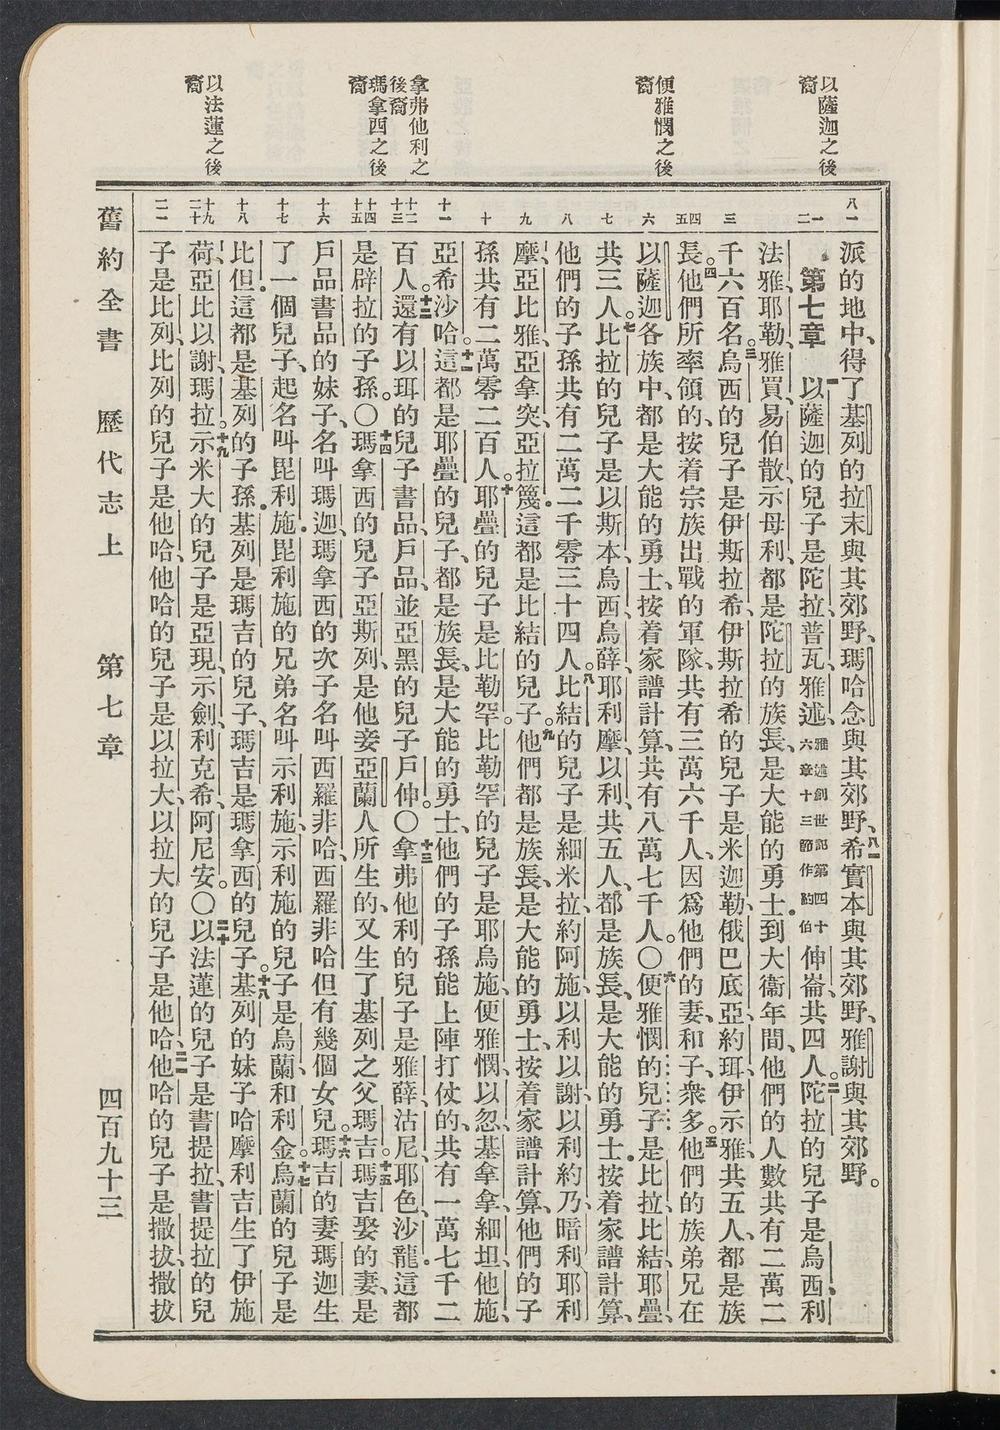 以薩迦之後
裔
便雅憫之後
裔
拿弗他利之
後裔
瑪拿西之後
裔
以法蓮之後
裔
八一
一
二
三
四
五
六
七
八
九
十
十一
十二
十三
十四
十五
十六
十七
十八
十九
二十
二一
派的地中、得了基列的拉末與其郊野、瑪哈念與其郊野、八一希實本與其郊野、雅謝與其郊野。
第七章 一以薩迦的兒子是陀拉、普瓦、雅述、雅述創世記第四十六章十三節作約伯伸崙、共四人。二陀拉的兒子是烏西、利
法雅、耶勒、雅買、易伯散、示母利、都是陀拉的族長、是大能的勇士．到大衞年間、他們的人數共有二萬二
千六百名。三烏西的兒子是伊斯拉希、伊斯拉希的兒子是米迦勒、俄巴底亞、約珥、伊示雅、共五人、都是族
長。四他們所率領的、按着宗族出戰的軍隊、共有三萬六千人、因爲他們的妻、和子、衆多。五他們的族弟兄在
以薩迦各族中、都是大能的勇士、按着家譜計算、共有八萬七千人。〇六便雅憫的兒子是比拉、比結、耶疊、
共三人。七比拉的兒子是以斯本、烏西、烏薛、耶利摩、以利、共五人、都是族長、是大能的勇士．按着家譜計算、
他們的子孫共有二萬二千零三十四人。八比結的兒子是細米拉、約阿施、以利以謝、以利約乃、暗利、耶利
摩、亞比雅、亞拿突、亞拉篾．這都是比結的兒子。九他們都是族長、是大能的勇士、按着家譜計算、他們的子
孫共有二萬零二百人。十耶疊的兒子是比勒罕。比勒罕的兒子是耶烏施、便雅憫、以忽、基拿拿、細坦、他施、
亞希沙哈。十一這都是耶疊的兒子、都是族長、是大能的勇士、他們的子孫能上陣打仗的、共有一萬七千二
百人。十二還有以珥的兒子書品、戶品、並亞黑的兒子戶伸。〇十三拿弗他利的兒子是雅薛、沽尼、耶色、沙龍．這都
是辟拉的子孫。〇十四瑪拿西的兒子亞斯列、是他妾亞蘭人所生的、又生了基列之父瑪吉。十五瑪吉娶的妻、是
戶品書品的妹子、名叫瑪迦、瑪拿西的次子名叫西羅非哈、西羅非哈但有幾個女兒。十六瑪吉的妻瑪迦生
了一個兒子、起名叫毘利施．毘利施的兄弟名叫示利施、示利施的兒子是烏蘭和利金。十七烏蘭的兒子是
比但．這都是基列的子孫．基列是瑪吉的兒子、瑪吉是瑪拿西的兒子。十八基列的妹子哈摩利吉生了伊施
荷、亞比以謝、瑪拉。十九示米大的兒子是亞現、示劍、利克希、阿尼安。〇二十以法蓮的兒子是書提拉、書提拉的兒
子是比列、比列的兒子是他哈、他哈的兒子是以拉大、以拉大的兒子是他哈、二一他哈的兒子是撒拔、撒拔
舊約全書 歷代志上 第七章 四百九十三